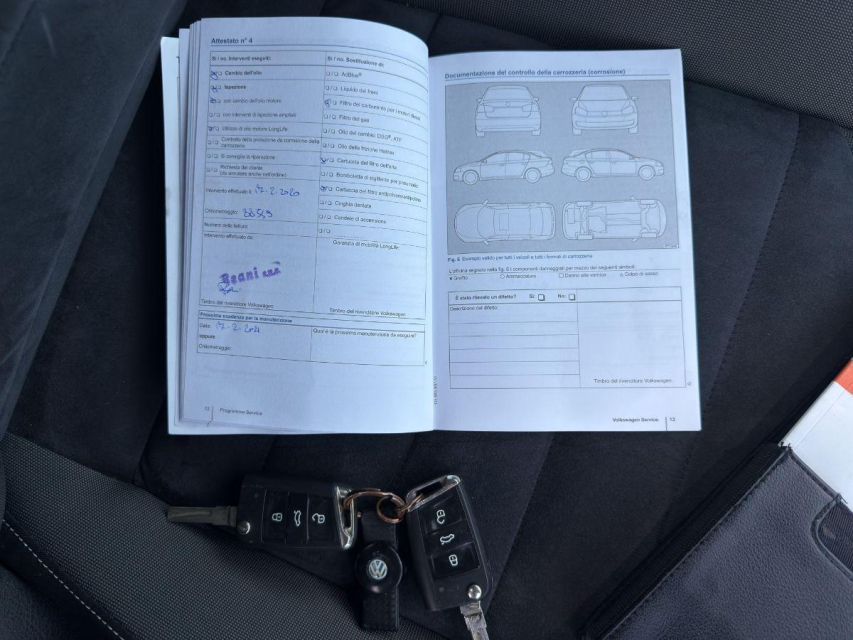 Attestato n° 4
Sì / no. Interventi eseguiti:
Cambio dell'olio
Ispezione
con cambio dell'olio motore
con interventi di ispezione ampliati
Utilizzo di olio motore LongLife
Controllo della protezione da corrosione della
carrozzeria
Si consiglia la riparazione
Richiesta del cliente
Intervento effettuato il: 12-2-2020
Chilometraggio:
Numero della fattura:
Intervento effettuato da:
Timbro del rivenditore Volkswagen
Prossima scadenza per la manutenzione
Data: 12-2-2021
oppure
Chilometraggio:
12 Programma Service
Sì / no. Sostituzione di:
AdBlue®
Liquido dei freni
Filtro del carburante per i motori diesel
Filtro del gas
Olio del cambio DSG®, ATF
Olio della frizione Haldex
Cartuccia del filtro dell'olio
Bomboletta di sigillante per pneumatici
Cartuccia del filtro antipolvere/antipolline
Cinghia dentata
Candele di accensione
Garanzia di mobilità LongLife:
Timbro del rivenditore Volkswagen
Qual è la prossima manutenzione da eseguire?
Documentazione del controllo della carrozzeria (corrosione)
Fig. 6 Esempio valido per tutti i veicoli e tutti i formati di carrozzeria
L'officina segnerà nella fig. 6 i componenti danneggiati per mezzo dei seguenti simboli:
Graffio Ammaccatura Danno alla vernice Colpo di sasso
È stato rilevato un difetto? Sì: No:
Descrizione del difetto:
Timbro del rivenditore Volkswagen
Volkswagen Service 13